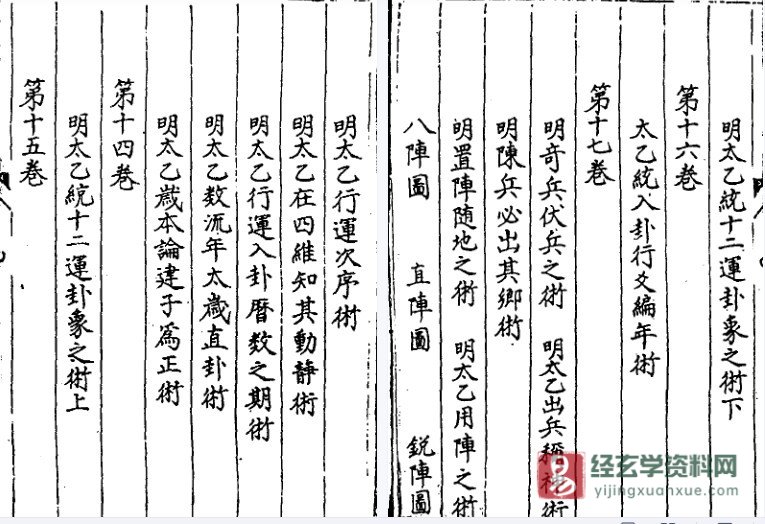 明太乙行運次序術
明太乙在四維知其動靜術
明太乙行運入卦曆数之期術
明太乙数流年太歲直卦術
明太乙歲本論建子爲正術
第十四卷
明太乙統十二運卦象之術上
第十五卷
明太乙統十二運卦象之術下
第十六卷
太乙統入卦行爻編年術
第十七卷
明奇兵伏兵之術　明太乙出兵術
明陳兵必出其鄉術
明置陣隨地之術　明太乙用陣之術
八陣圖　直陣圖　銳陣圖
易
经玄学资料网
yijingxuanxue.com